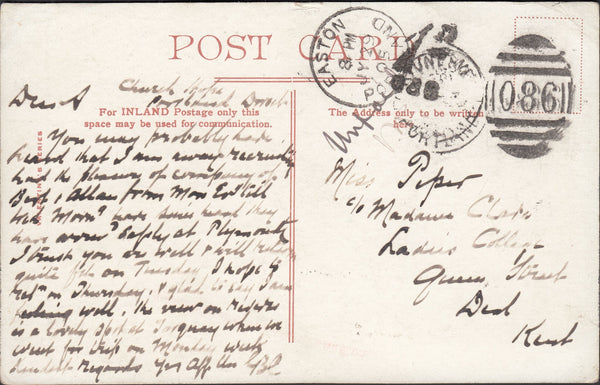 POST CARD
Church Hope
Portland Dorset
Dear A
For INLAND Postage only this
space may be used for communication.
The Address only to be written
here.
EASTON
PORTLAND
PORTLAND
086
You may probably have
heard that I am away recruiting
had the pleasure of company of
Bert, Allan from Mon to till
last Morng have since heard they
have arrived safely at Plymouth
I trust you are well & will return
quite fit on Tuesday I hope to
retn on Thursday, & glad to say I am
feeling well. The view on reverse
is a lovely spot at Torquay when we
went for trip on Monday week
kindest regards Yrs Aff
Miss Piper
c/o Madame Clare
Ladies College
Queen Street
Deal
Kent